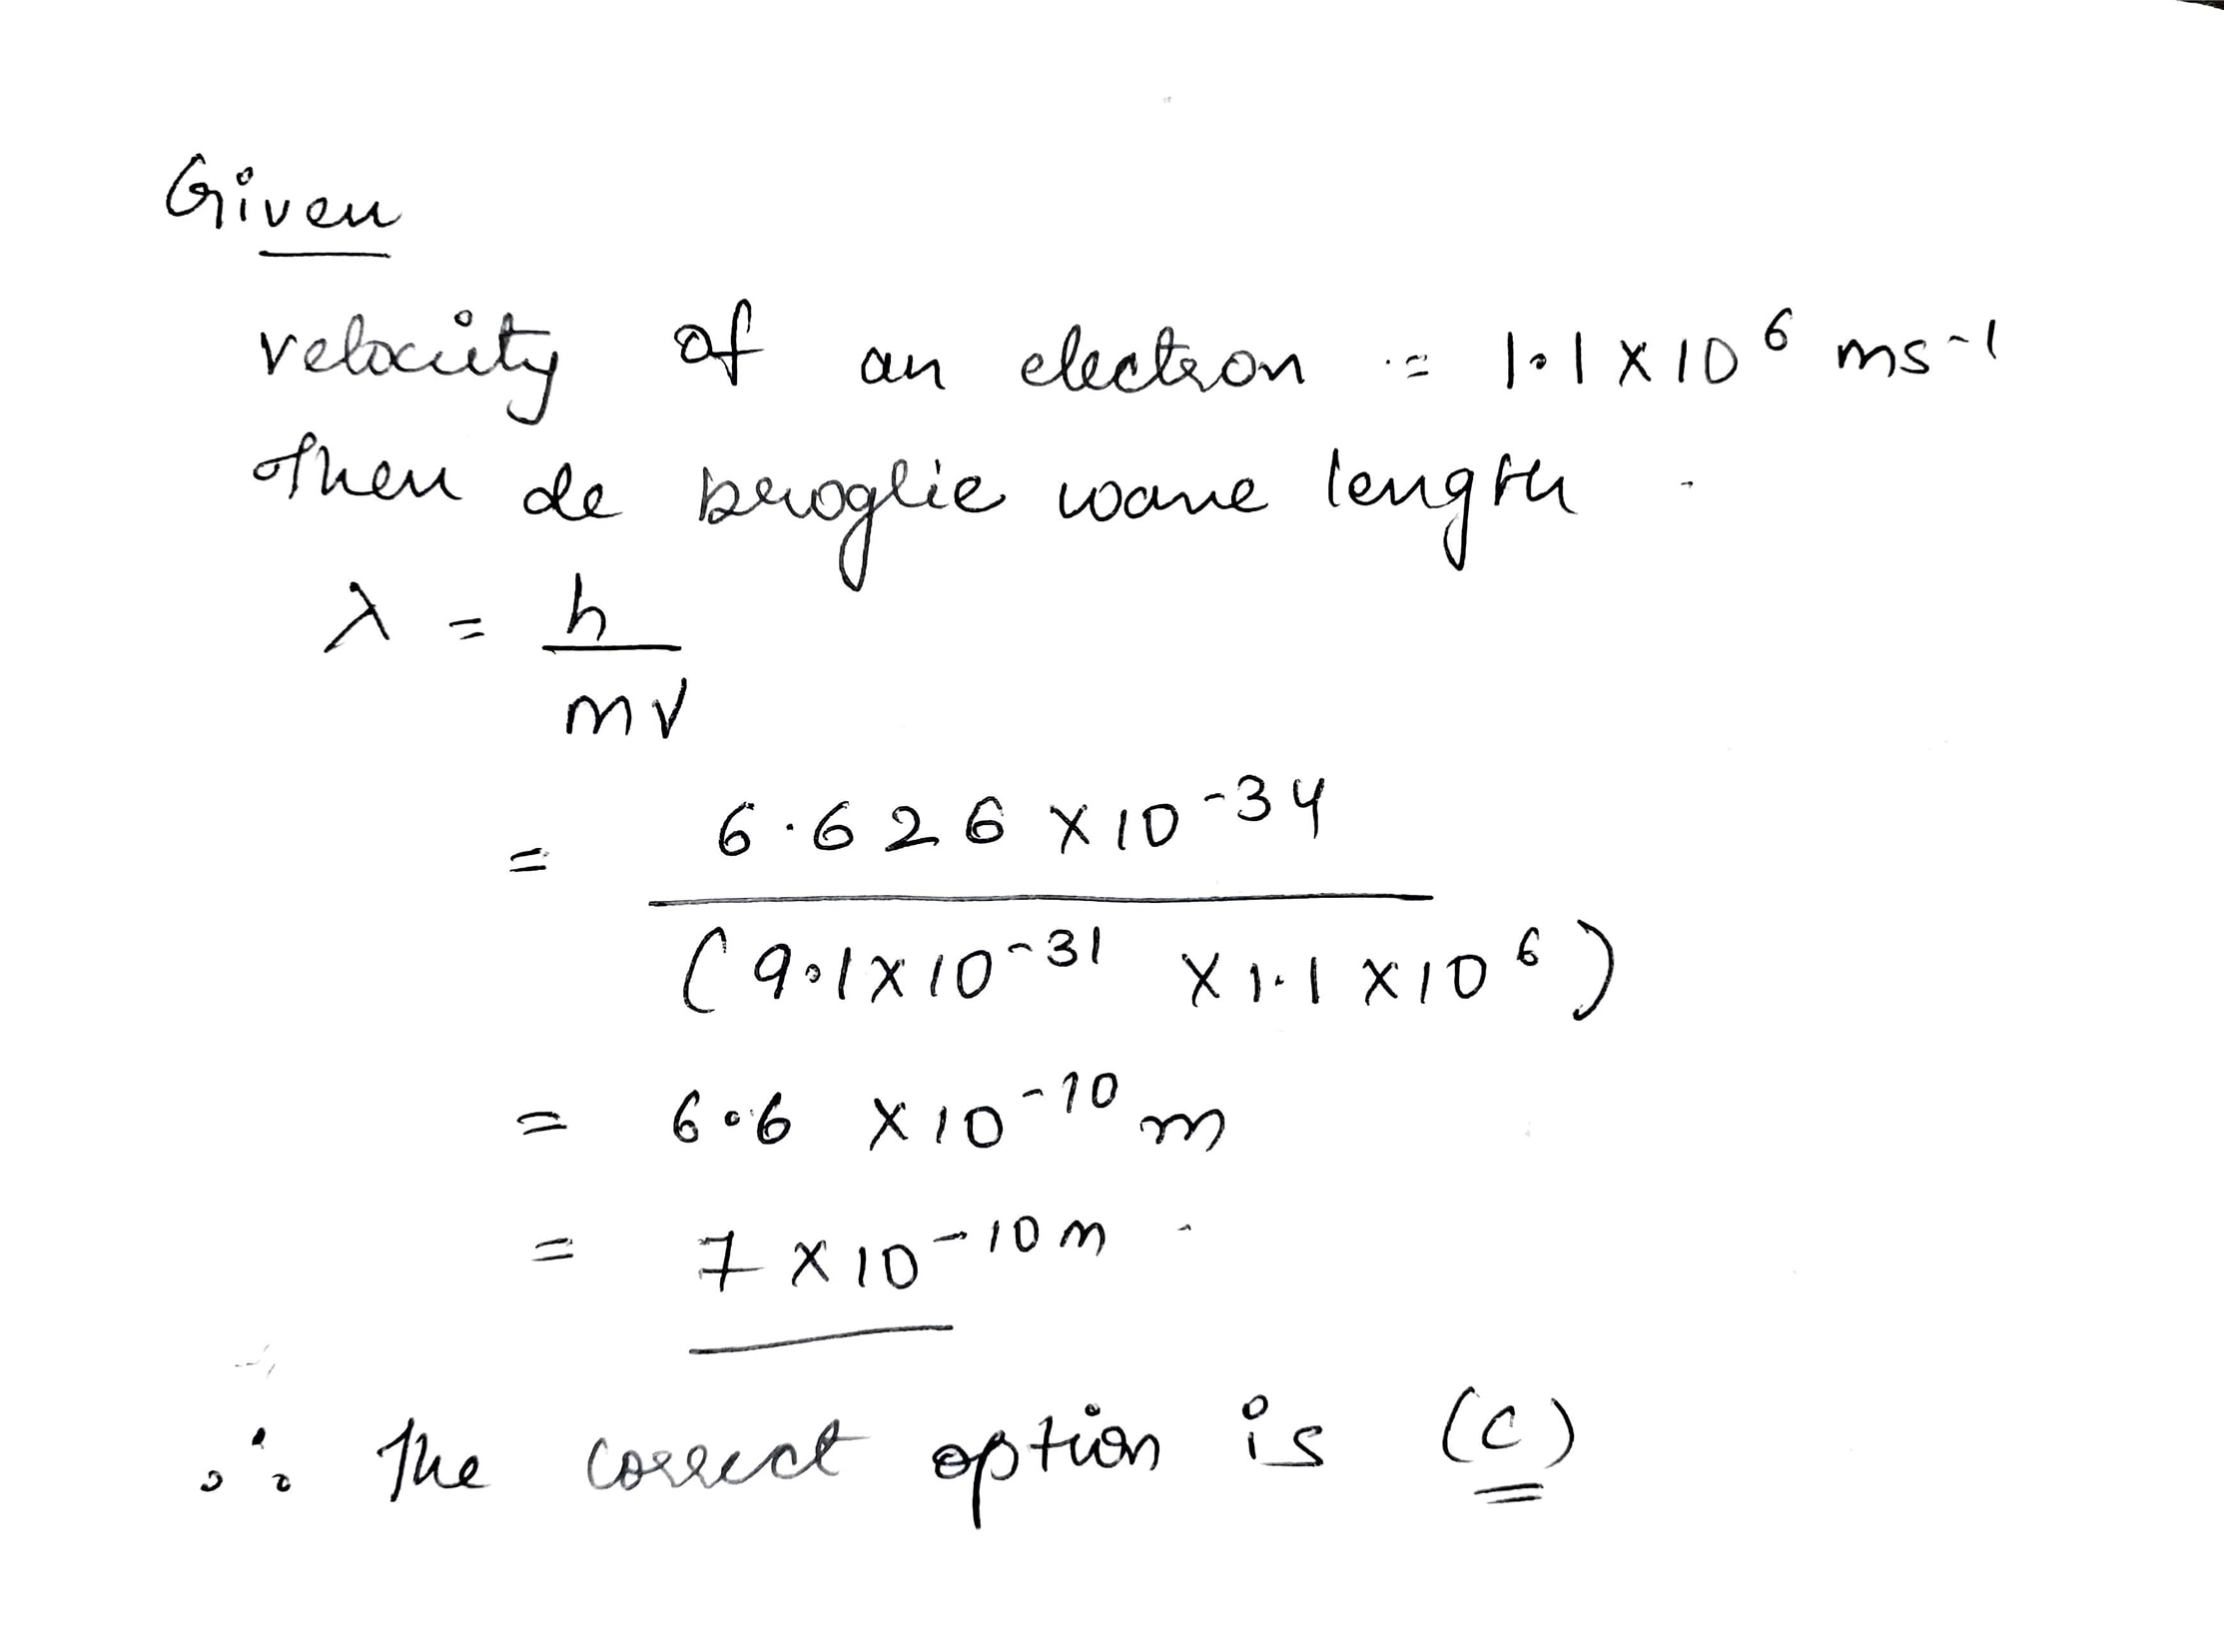 Given
velocity of an electron = 1.1 x 10⁶ ms⁻¹
Then de broglie wave length -
λ = h
mv
= 6.626 x 10⁻³⁴
(9.1 x 10⁻³¹ x 1.1 x 10⁶)
= 6.6 x 10⁻¹⁰ m
= 7 x 10⁻¹⁰ m -
∴ The correct option is (C)